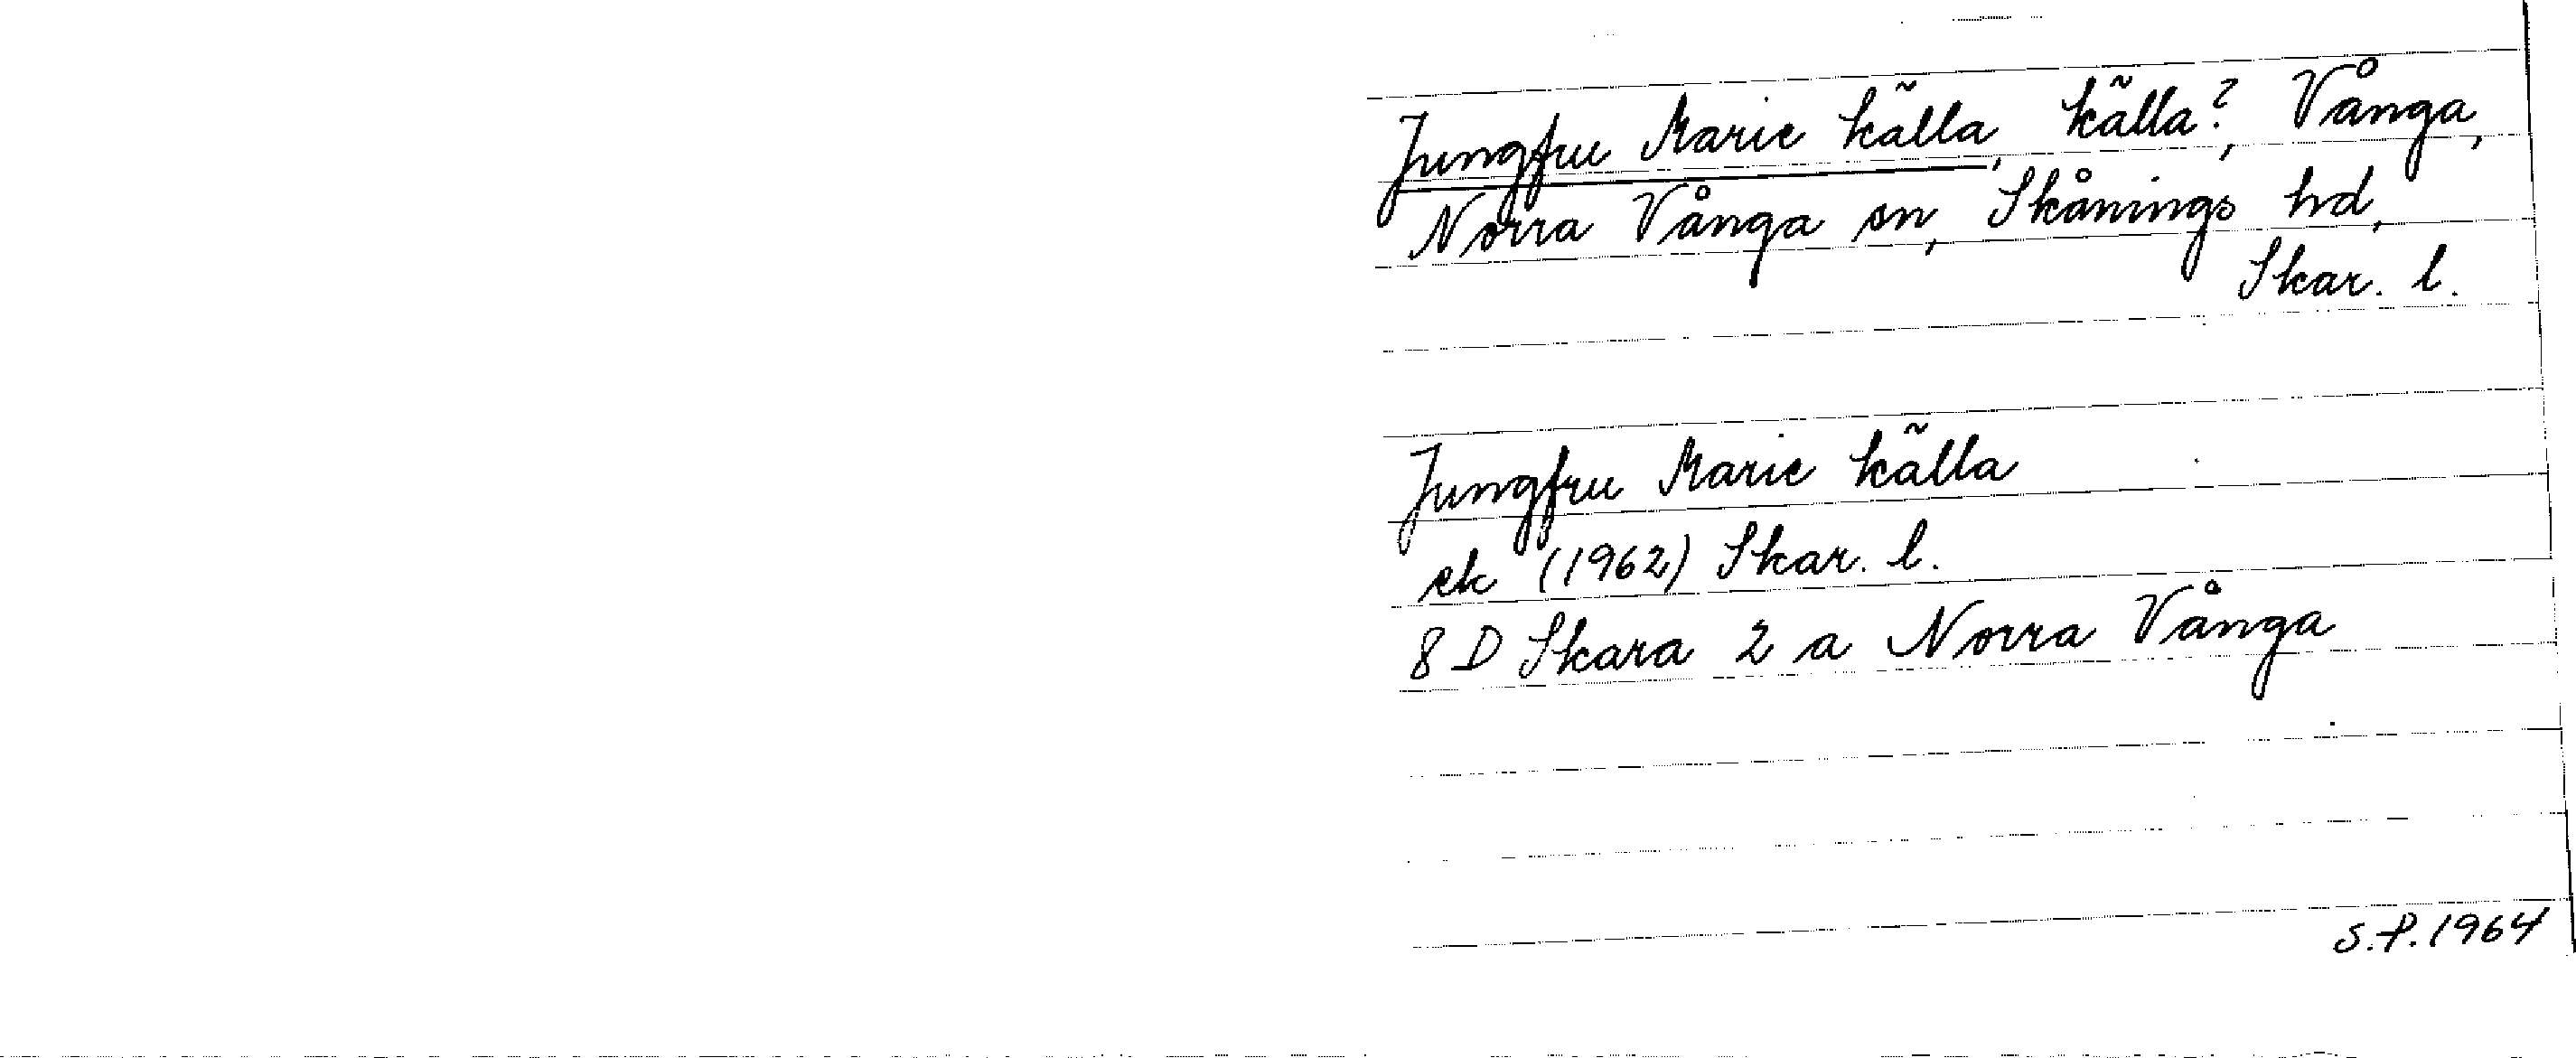 Jungfru Marie källa, källa?, Vånga,
Norra Vånga sn, Skånings hd,
Skar. l.
Jungfru Marie källa
ek (1962) Skar. l.
8 D Skara 2 a Norra Vånga
S.P. 1964